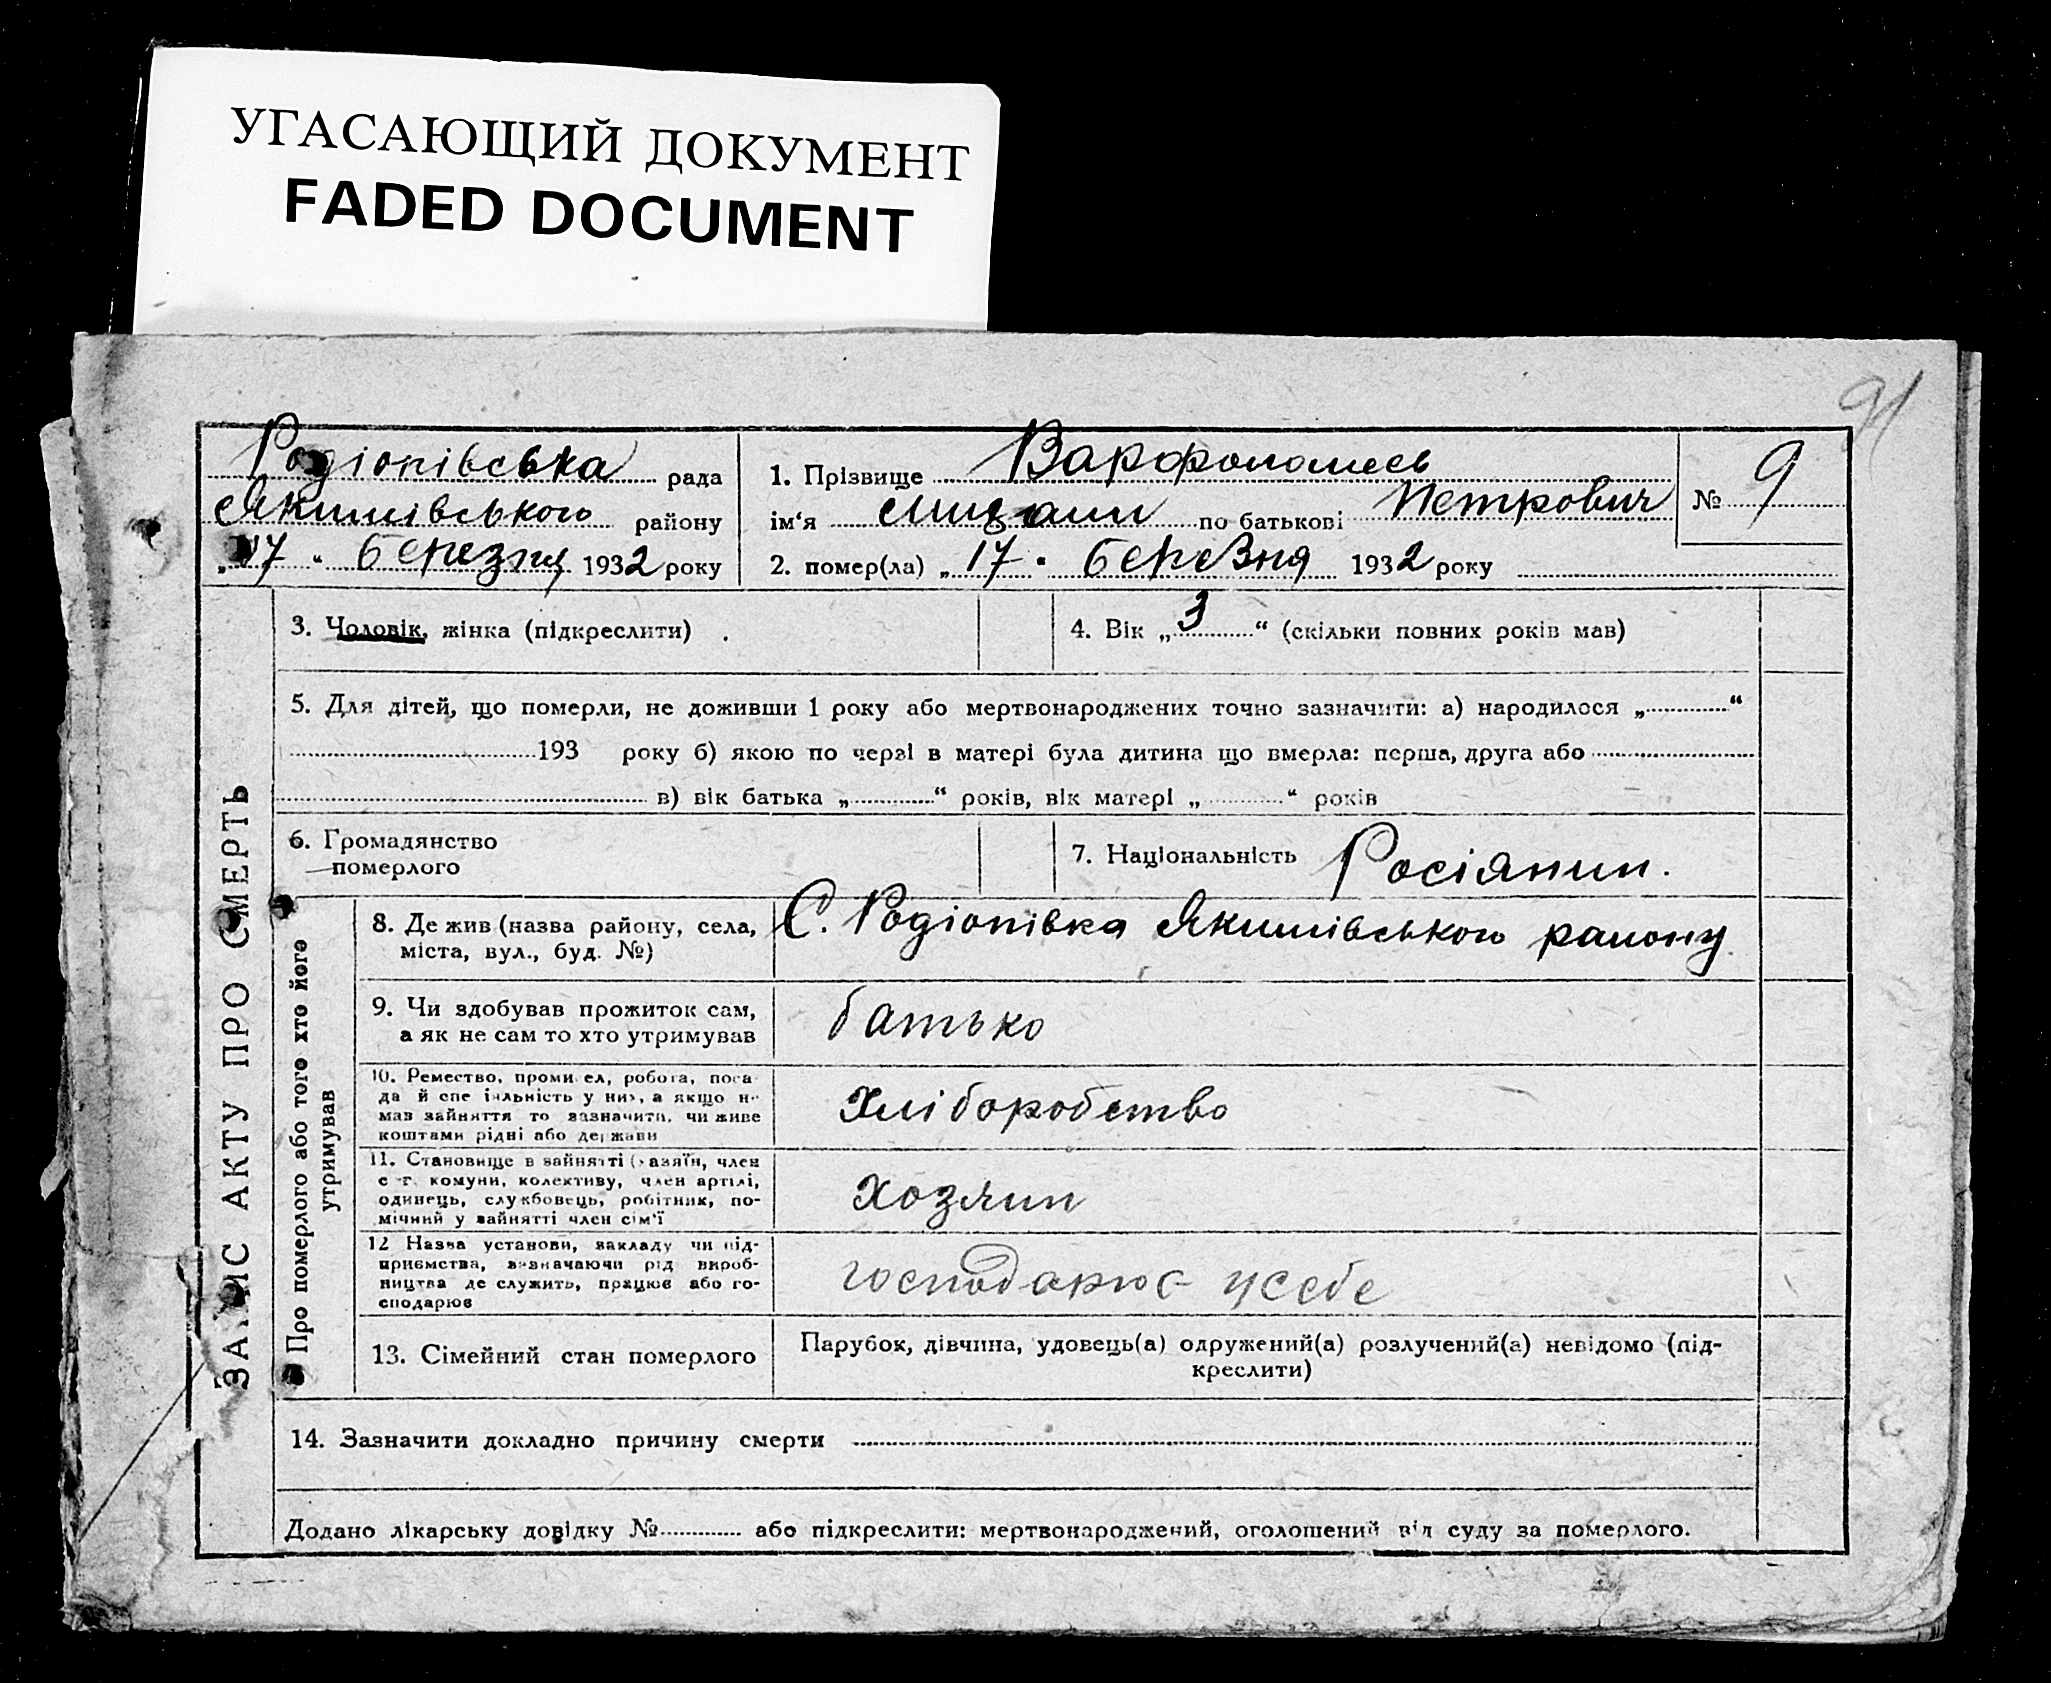 УГАСАЮЩИЙ ДОКУМЕНТ
FADED DOCUMENT
91
Родіонівська рада
Якимівського району
„17“ березня 1932 року
1. Прізвище Варфоломеев
ім‘я по батькові Петрович
№ 9
2. помер(ла) „17“ березня 1932 року
ЗАПИС АКТУ ПРО СМЕРТЬ
3. Чоловік, жінка (підкреслити)
4. Вік „3“ (скільки повних років мав)
5. Для дітей, що померли, не доживши 1 року або мертвонароджених точно зазначити: а) народилося „ “
193 року б) якою по черзі в матері була дитина що вмерла: перша, друга або
в) вік батька „ “ років, вік матері „ “ років
6. Громадянство
померлого
7. Національність Росіянин.
Про померлого або того хто його
утримував
8. Де жив (назва району, села,
міста, вул., буд. №)
С. Родіонівка Якимівського району
9. Чи здобував прожиток сам,
а як не сам то хто утримував
батько
10. Ремество, промисел, робота, поса-
да й спеціяльність у них, а якщо не
мав зайняття то зазначити, чи живе
коштами рідні або держави
Хліборобство
11. Становище в зайнятті (хазяїн, член
с-г. комуни, колективу, член артілі,
одинець, службовець, робітник, по-
мічний у зайнятті член сім‘ї
хозяин
12 Назва установи, закладу чи під-
приємства, зазначаючи рід вироб-
ництва де служить, працює або го-
сподарює
господарює у себе
13. Сімейний стан померлого
Парубок, дівчина, удовець(а) одружений(а) розлучений(а) невідомо (під-
креслити)
14. Зазначити докладно причину смерти
Додано лікарську довідку № або підкреслити: мертвонароджений, оголошений від суду за померлого.